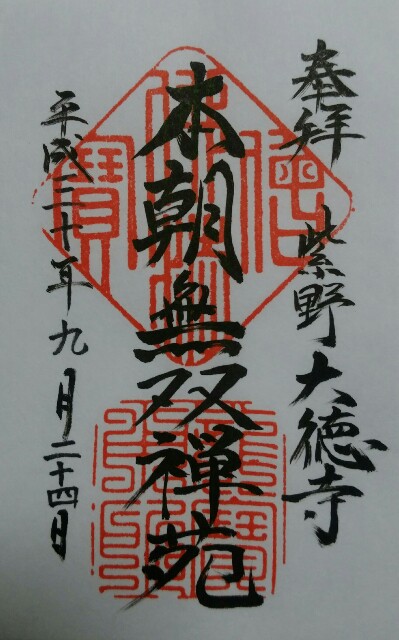 奉拝　紫野大徳寺
本朝無双禅苑
平成三十年九月二十四日